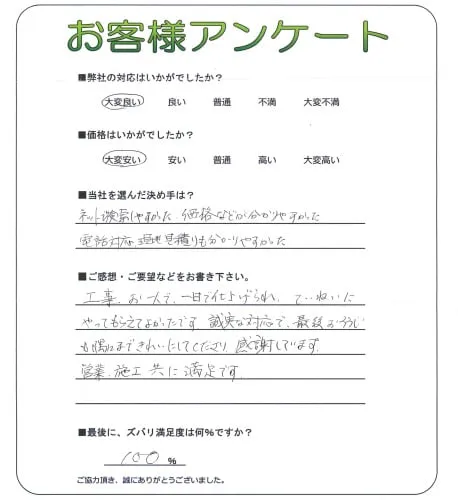 お客様アンケート
■弊社の対応はいかがでしたか？
大変良い 良い 普通 不満 大変不満
■価格はいかがでしたか？
大変安い 安い 普通 高い 大変高い
■当社を選んだ決め手は？
ネット検索しやすかった 価格などが分かりやすかった
電話対応、現地見積りも分かりやすかった
■ご感想・ご要望などをお書き下さい。
工事、お一人で、一日で仕上げられ、ていねいに
やってもらえてよかったです。誠実な対応で、最後のそうじ
も隅まできれいにしてくださり、感謝しています。
営業、施工 共に 満足です。
■最後に、ズバリ満足度は何％ですか？
100 ％
ご協力頂き、誠にありがとうございました。